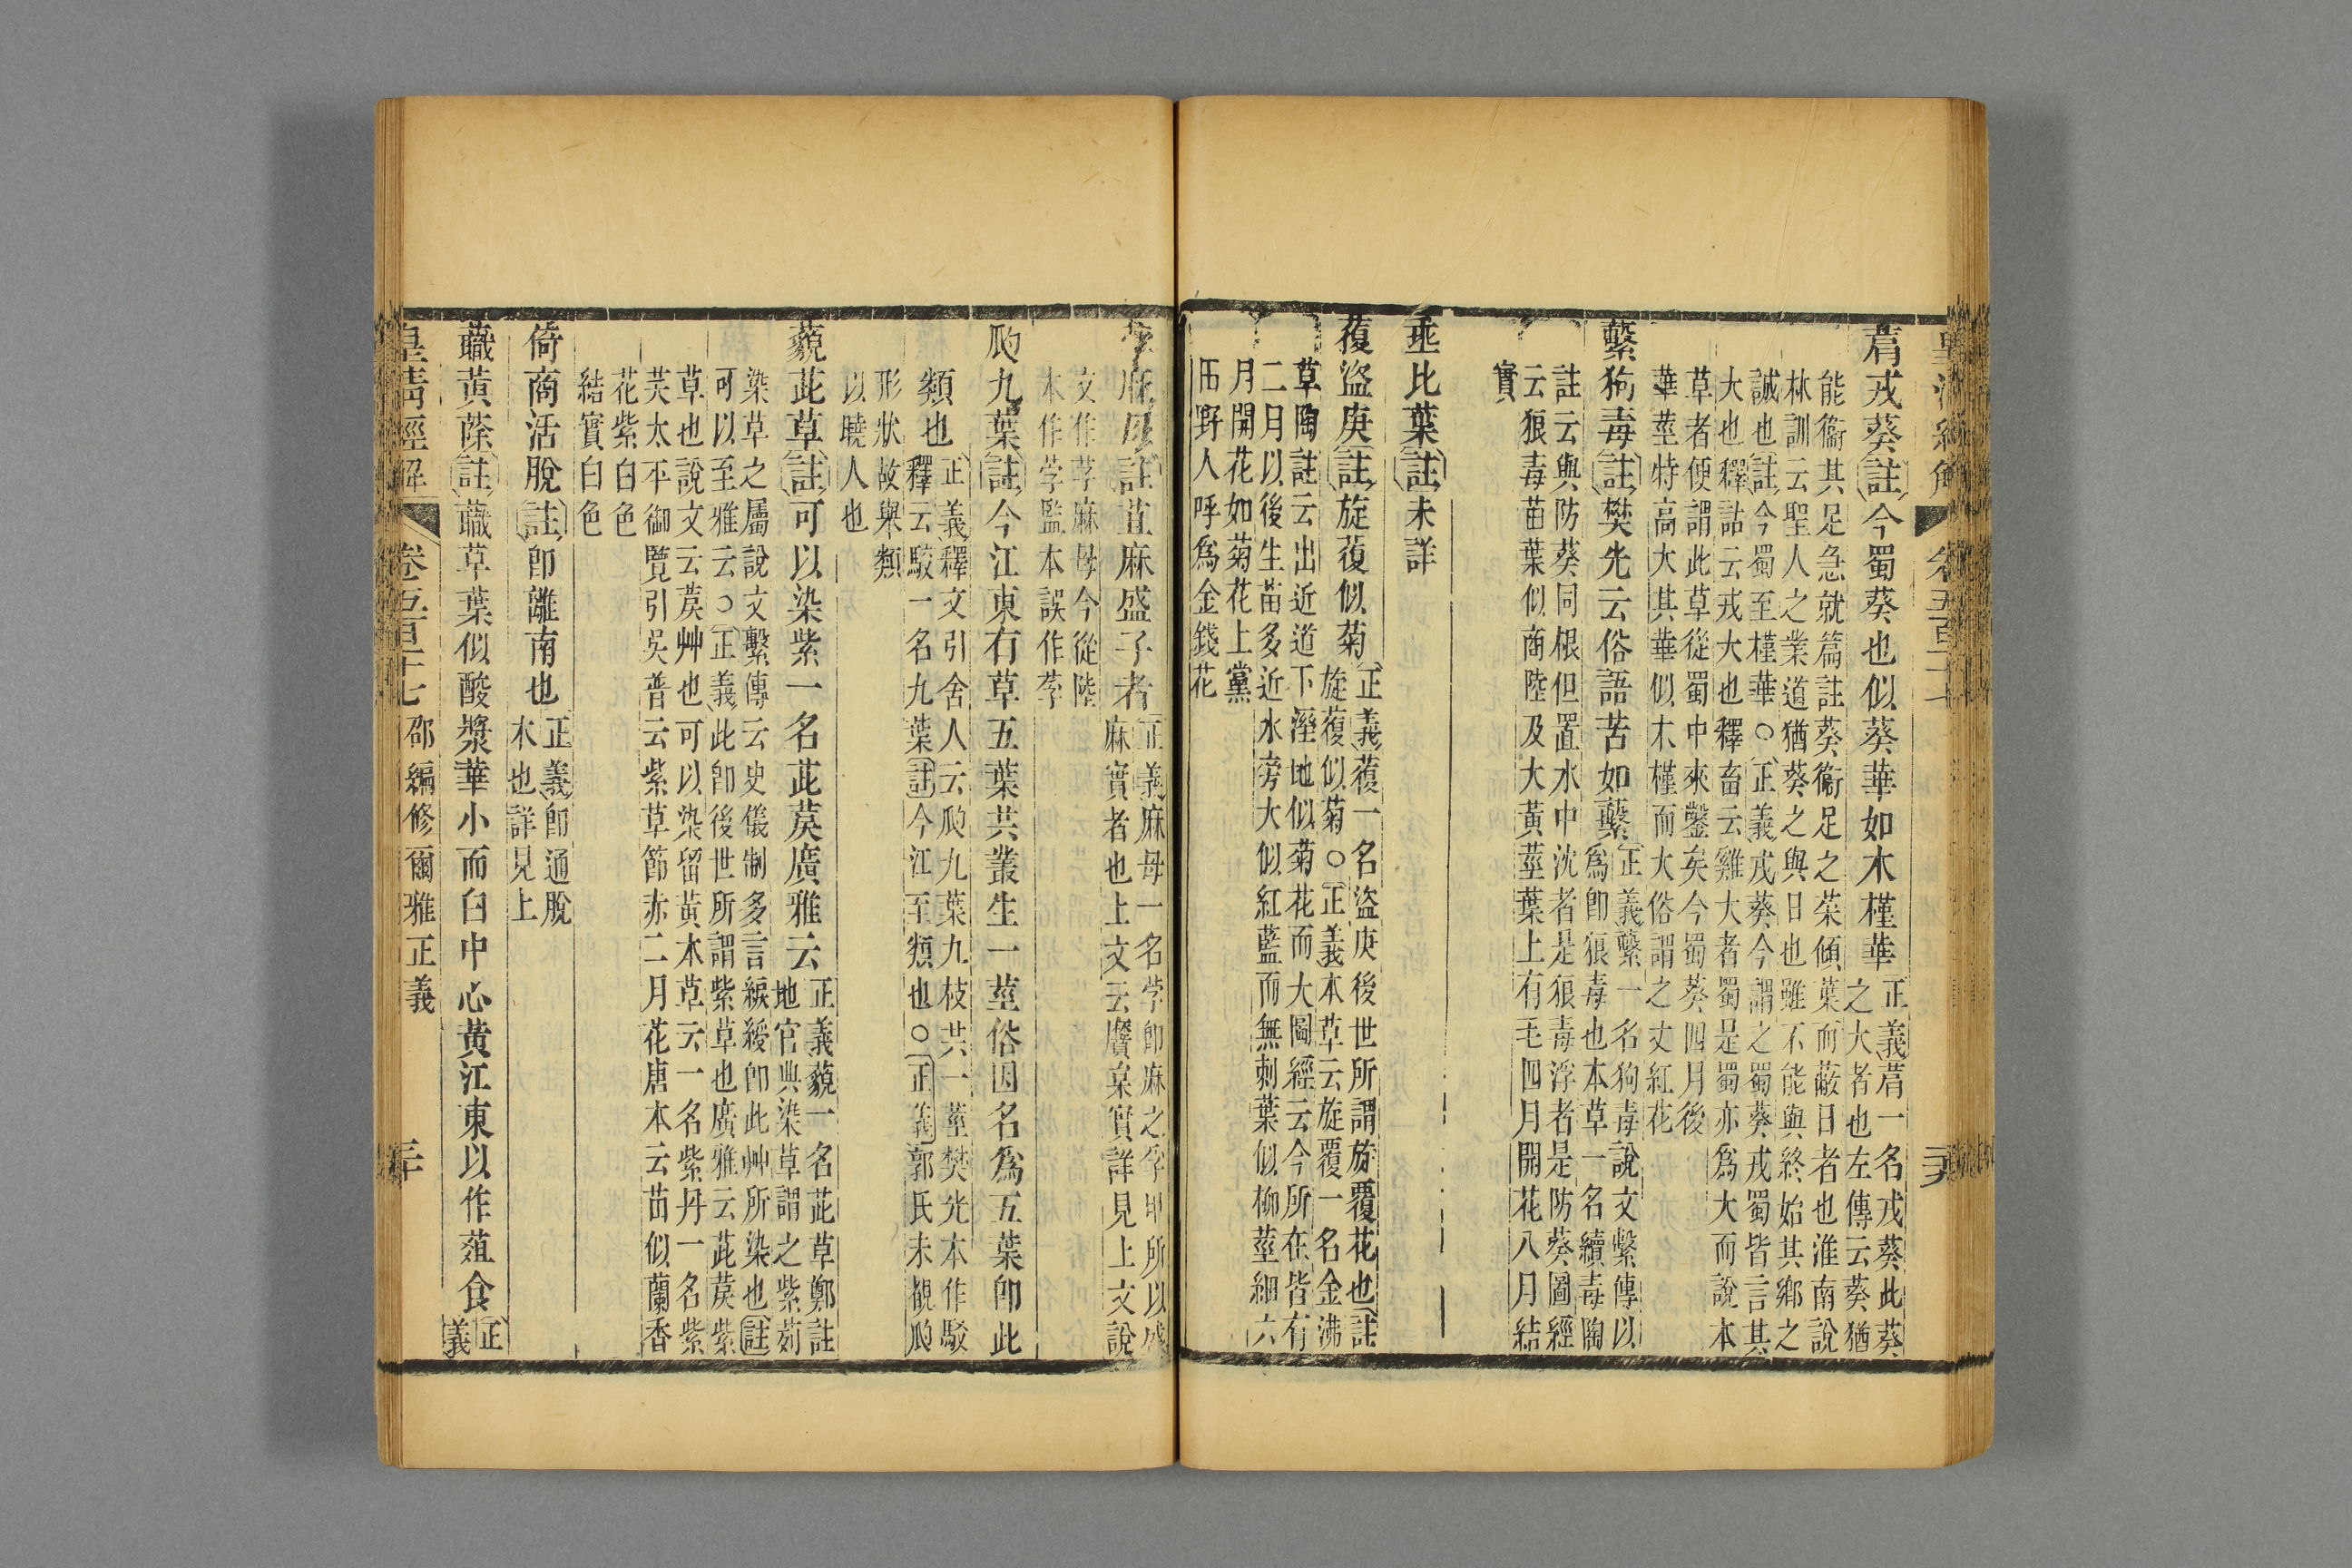 菺戎葵註今蜀葵也似葵華如木槿華正義菺一名戎葵此葵
之大者也左傳云葵猶
能衞其足急就篇註葵衞足之菜傾葉而蔽日者也淮南說
林訓云聖人之業道猶葵之與日也雖不能與終始其鄉之
誠也註今蜀至槿華○正義戎葵今謂之蜀葵戎蜀皆言其
大也釋詁云戎大也釋畜云雞大者蜀是蜀亦爲大而說本
草者便謂此草從蜀中來鑿矣今蜀葵四月後
華莖特高大其華似木槿而大俗謂之丈紅花
蘩狗毒註樊光云俗語苦如蘩正義蘩一名狗毒說文繫傳以
爲卽狼毒也本草一名續毒陶
註云與防葵同根但置水中沈者是狼毒浮者是防葵圖經
云狼毒苗葉似商陸及大黃莖葉上有毛四月開花八月結
實
垂比葉註未詳
蕧盜庚註旋蕧似菊正義蕧一名盜庚後世所謂旋覆花也註
旋蕧似菊○正義本草云旋覆一名金沸
草陶註云出近道下溼地似菊花而大圖經云今所在皆有
二月以後生苗多近水旁大似紅藍而無刺葉似柳莖細六
月開花如菊花上黨
田野人呼爲金錢花
麻母註苴麻盛子者正義麻母一名茡卽麻之孚甲所以盛
麻實者也上文云黂枲實詳見上文說
文作芓麻母今從陸
本作茡監本誤作荸
瓝九葉註今江東有草五葉共叢生一莖俗因名爲五葉卽此
類也正義釋文引舍人云瓝九葉九枝共一莖樊光本作駮
釋云駮一名九葉註今江至類也○正義郭氏未覩瓝
形狀故舉類
以曉人也
藐茈草註可以染紫一名茈䓞廣雅云正義藐一名茈草鄭註
地官典染草謂之紫茢
染草之屬說文繫傳云史儀制多言綟綬卽此艸所染也註
可以至雅云○正義此卽後世所謂紫草也廣雅云茈䓞紫
草也說文云䓞艸也可以染留黃本草云一名紫丹一名紫
芺太平御覽引吳普云紫草節赤二月花唐本云苗似蘭香
花紫白色
結實白色
倚商活脫註卽離南也正義卽通脫
木也詳見上
蘵黃蒢註蘵草葉似酸漿華小而白中心黃江東以作菹食正
義
皇淸經解 卷五百十七 邵編修爾雅正義 三十